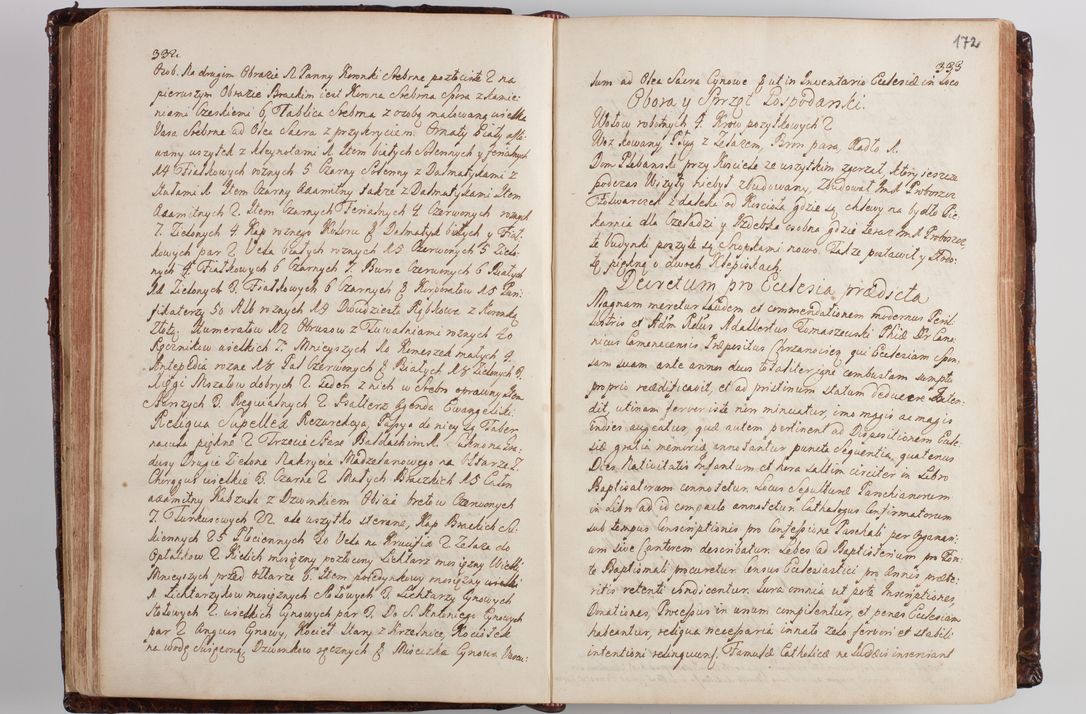 332.
Ozob. Na drugim Obrazie N. Panny Koronki Srebrne pozłociste 2 na
pierwszym Obrazie Brackim iest Korona Srebrna spora z kamie-
niami Czeskiemi 6 Tablica Srebrna z osobą malowaną
Vasa Srebrne ad Olea Sacra z przykryciem. Ornaty Biały
wany wszytek z 1. Item białych Solennych y ferialnych
14 Fiałkowych rożnych 5 Czarny Solenny z Dalmatykami z
Stułami 1. Item Czarny Axamitny także z Dalmatykami Item
Axamitnych 2. Item Czarnych Ferialnych 4 Czerwonych rożnych
7. Zielonych 4 Kap rożnego Koloru 8 Dalmatyk białych y Fiał-
kowych par 2 Vela białych rożnych 15 Czerwonych 5 Zielo-
nych 4. Fiałkowych 6 Czarnych 7. Bursse Czerwonych 6 Białych
11 Zielonych 3. Fiałkowych 6 Czarnych 8 Korporałow 15 Puri-
fikaterzy 30 Alb rożnych 14 Dwudziesta Rąbkowa z Koronką
Złotą. Humerałow 12 Obrusow z Tuwalniami rożnych 40
Ręcznikow wielkich 7. Mnieyszych 10 Komeszek małych 4.
Antepedia rożne 18 Pal Czerwonych 8 Białych 18 Zielonych 3.
Xięgi Mszałow dobrych 2 Ieden z nich w Srebro oprawny Item
Starszych 3. Requialnych 2 Psałterz Agenda Ewangeliski.
Reliqua Supellex Rezurekcya, Passya do niey są Taber
nacula piękne 2 Trzecie Stare Baldachim 1.
dusy Drugie Zielone Nakrycia Madzelanowego na Ołtarze 7.
Chorągwi wielkie 3. Czarne 2 Małych Brackich 15
axamitny Kabzule z Dzwonkiem Obicia bretow Czerwonych
7. Turkusowych 22. ale wszytko sterane, Kap Brackich Su-
kiennych 25 Płociennych 20 Vela na Krucifix 2 Zelaza do
Opłatkow 2 Kielich mosiężny pozłocony Lichtarz mosiężny Wielki
Mnieyszych przed ołtarze 6. Item potedynkowy mosiężny wielki
1 Lichtarzykow mosiężnych Stołowych 3. Lichtarzy Cynowych
Stołowych 2. wielkich Cynowych par 3. Do S. Antoniego Cynowych
par 2 Angus Cynowy, Kocieł Stary z Krzcielnice, Kociołek
na wodę Swięconą Dzwonkow ręcznych 8 Miseczka Cynowa Vascu-
172
333
sum ad Olea Sacra Cynowe 8 ut in Inventario Ecclesiæ in Loco
Obora y Sprzęt Gospodarski.
Wołow robotnych 4. Krow pozytkowych 2
Woz kowany Pług z Zelazem, Bron para, Radło 1.
Dom Plebanski przy Kosciele ze wszytkim zgorzał, ktory ieszcze
podczas Wizyty niebył zbudowany, Zbudował Imć X. Proboszcz
Folwarczek z daleka od Kosciola gdzie są chlewy na bydło Pie-
karnia dla Czeladzi y Izdebka osobna gdzie teraz Imć X. Proboszcz
te budynki poszyte są Snopkami nowo. Takze postawił y Stodo-
łę piękną o dwoch Klepiskach.
Decretum pro Ecclesia prædicta
Magnam meretur laudem et commendationem modernus Peril-
lustris et Adm Rdus Adalbertus Tomaszewski Phiæ Dr Cano-
nicus Camenecensis Præpositus Chrzanovien, qui Ecclesiam spon-
sam suam ante annos duos totaliter igne combustam sumptu
proprio reædificavit, et ad pristinum statum deducere conten-
dit, utinam fervor iste non minuatur, imo magis ac magis
indies augeatur, quæ autem pertinent ad Dispositionem Eccle-
siæ gratia memoriæ annotantur puncta sequentia, quatenus
Dies Nativitatis Infantum et hora saltim circiter in Libro
Baptisatorum connotetur. Locus Sepulturæ Parochianorum
in Libro ad id comparato annotetur. Cathalogus Confirmatorum
sub tempus Conscriptionis pro Confessione Paschali per Organari-
um sive Cantorem describatur. Lebes ad Baptisterium pro Fon-
te Baptismali procuretur. Census Ecclesiastici pro Annis præte-
ritis retenti vindicentur. Iura omnia ut pote Inscriptiones,
Donationes, Processus in unum compilentur, et penes Ecclesiam
habeantur, reliqua necessaria innato zelo fervori et stabili
intentioni relinquunt. Famulæ Catholicæ ne Iudæis inserviant